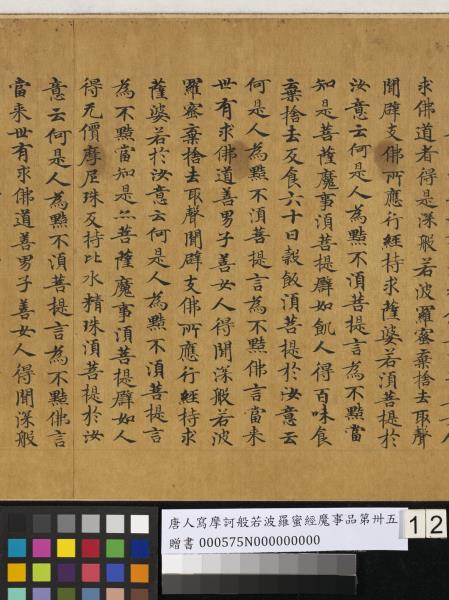 求佛道者得是深般若波羅蜜棄捨去取聲
聞辟支佛所應行經持求薩婆若須菩提於
汝意云何是人為黠不須菩提言為不黠當
知是菩薩魔事須菩提辟如飢人得百味食
棄捨去反食六十日穀飯須菩提於汝意云
何是人為黠不須菩提言為不黠佛言當來
世有求佛道善男子善女人得聞深般若波
羅蜜棄捨去取聲聞辟支佛所應行經持求
薩婆若於汝意云何是人為黠不須菩提言
為不黠當知是亦菩薩魔事須菩提辟如人
得无價摩尼珠反持比水精珠須菩提於汝
意云何是人為黠不須菩提言為不黠佛言
當來世有求佛道善男子善女人得聞深般
唐人寫摩訶般若波羅蜜經魔事品第卅五
贈書 000575N000000000
12